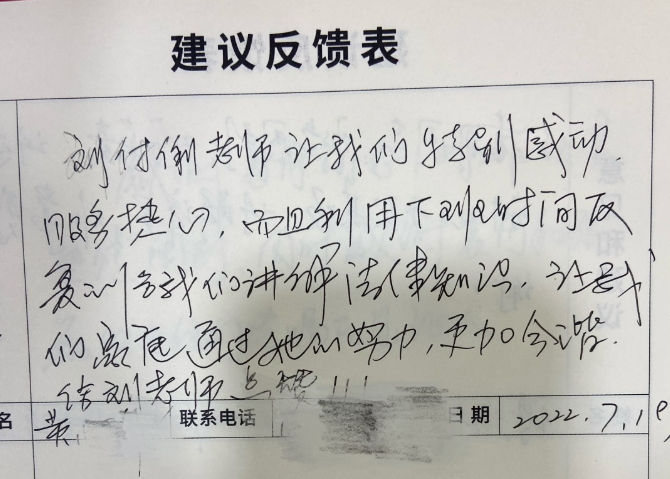 建议反馈表
刘付俐老师让我们特别感动.
服务热心,而且利用下班时间反
复训给我们讲解法律知识,让我
们家庭通过她的努力,更加合谐.
给刘老师点赞!!!
名 黄 联系电话 日期 2022.7.19